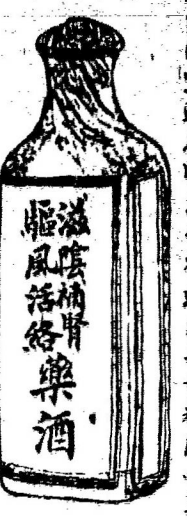 滋陰補腎
驅風活絡
藥酒